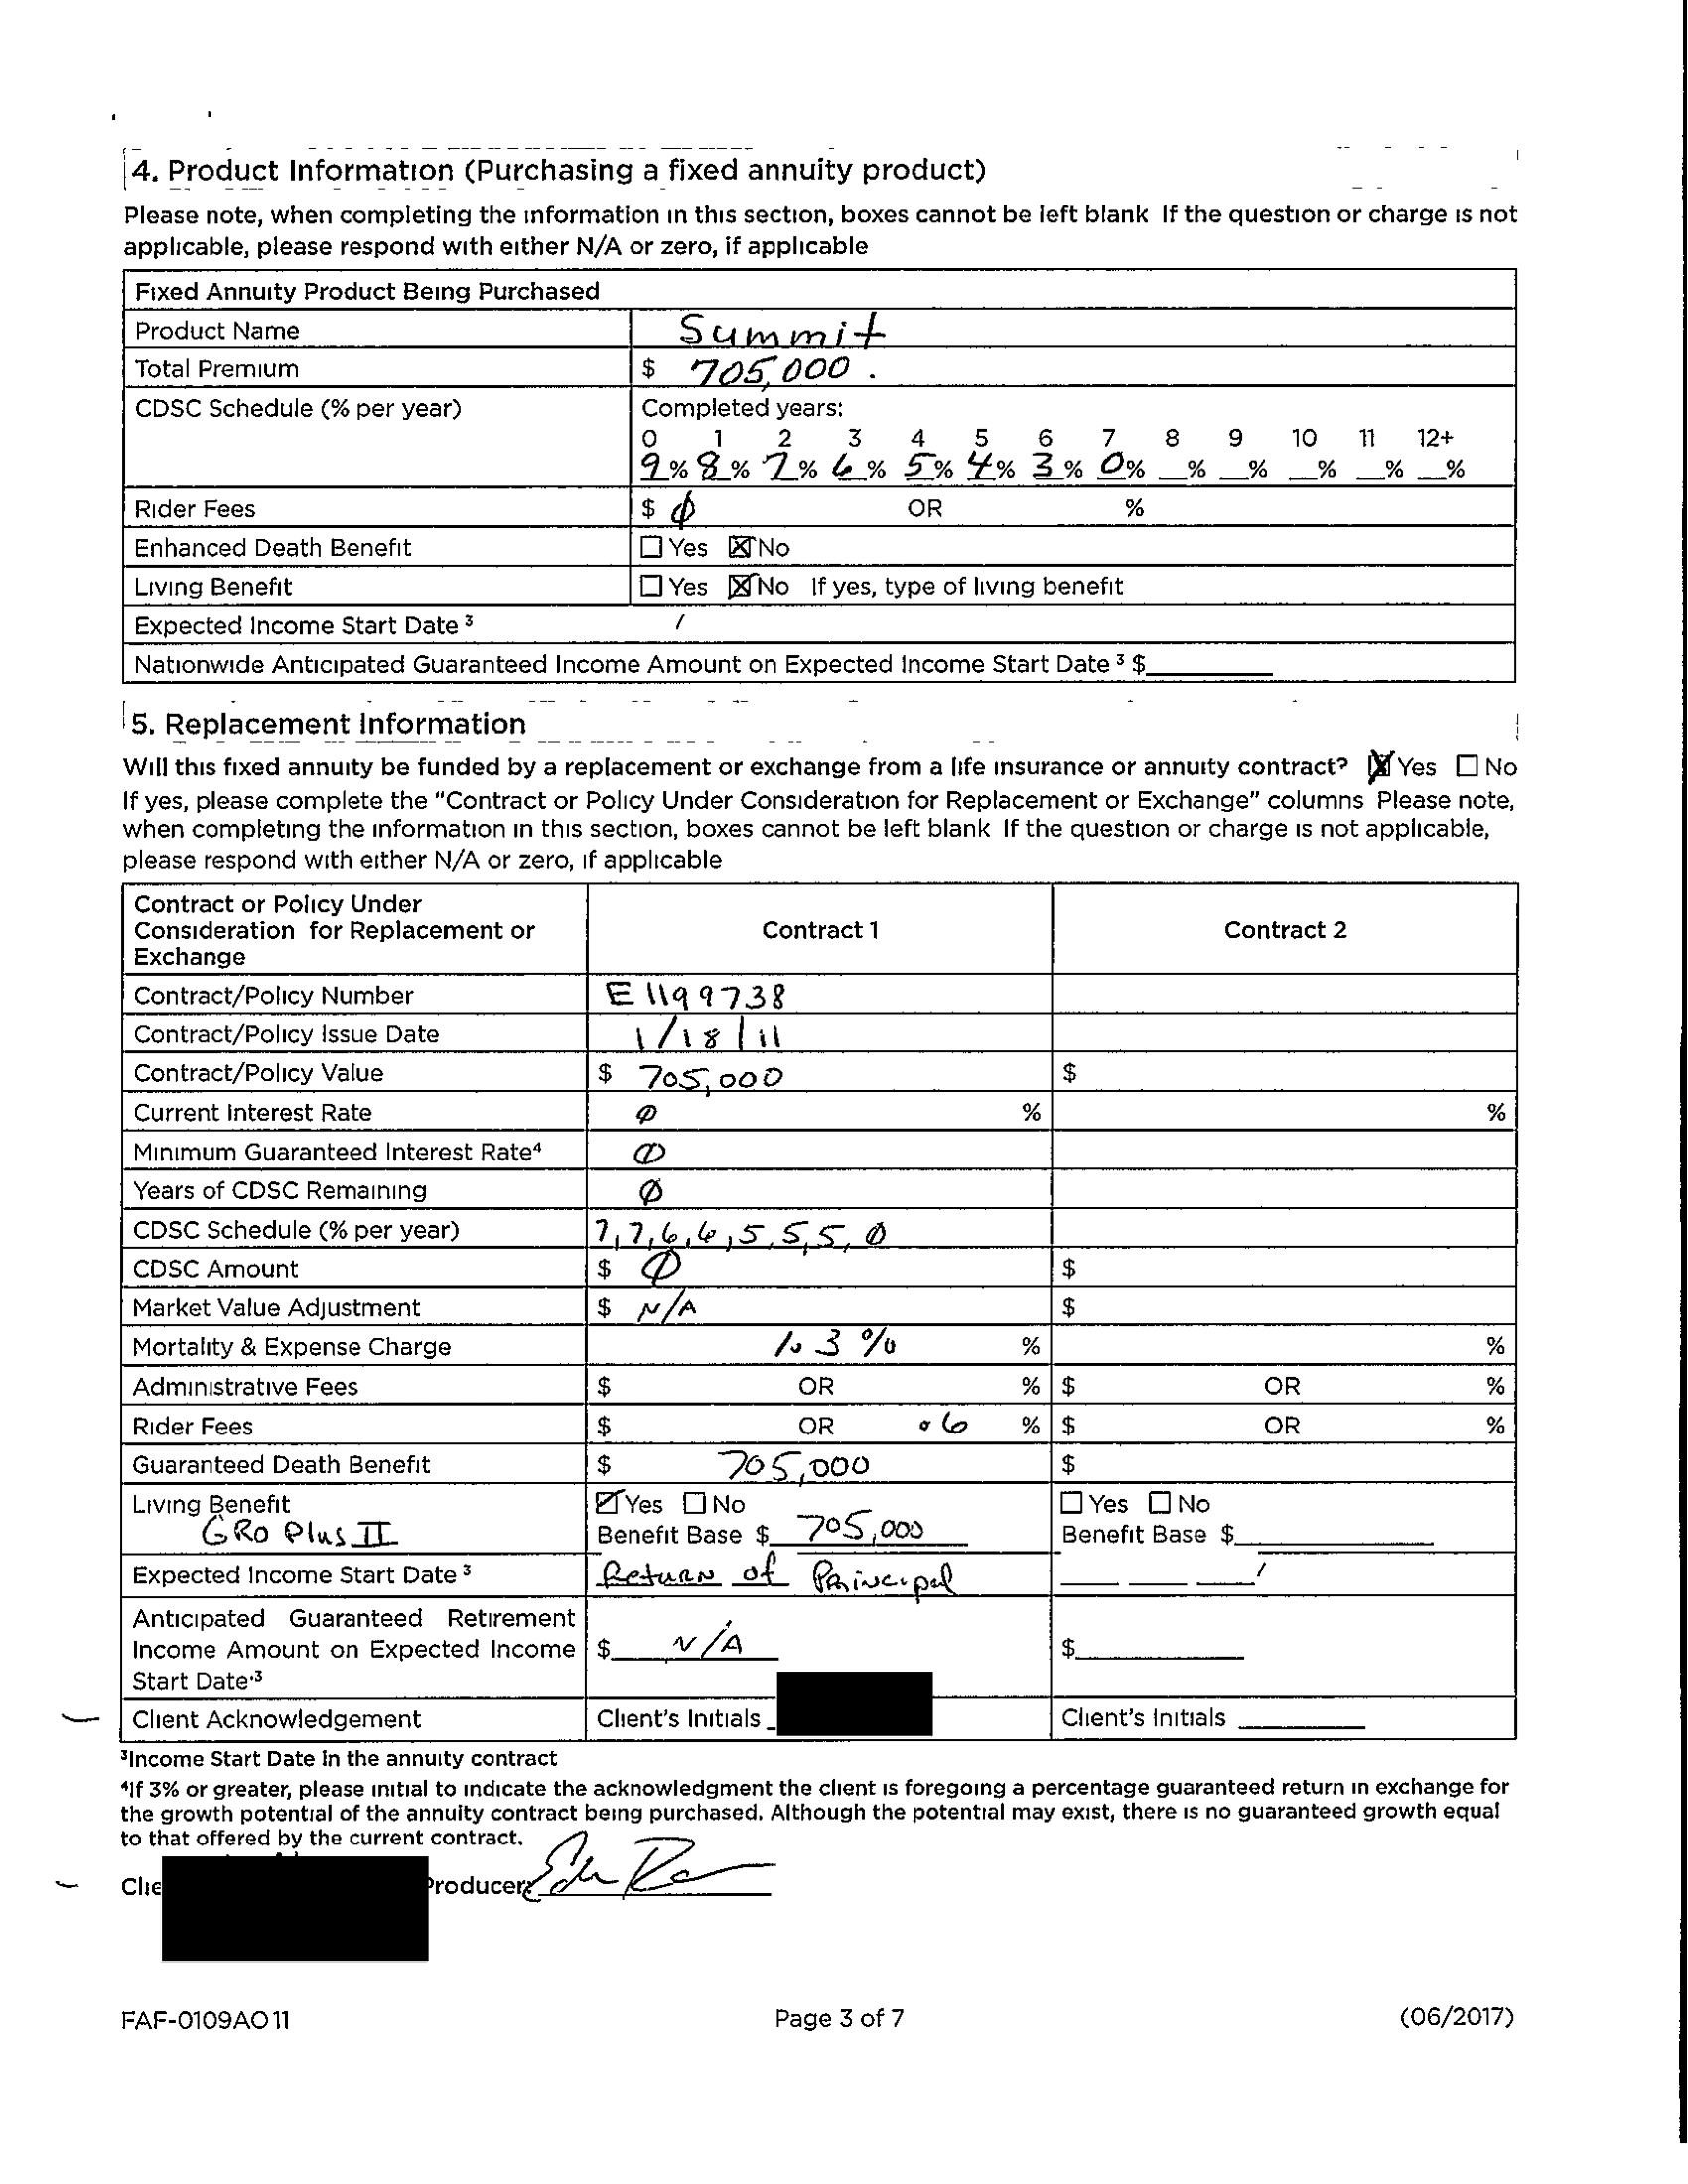 4. Product Information (Purchasing a fixed annuity product)
Please note, when completing the information in this section, boxes cannot be left blank If the question or charge is not
applicable, please respond with either N/A or zero, if applicable
Fixed Annuity Product Being Purchased
Product Name Summit
Total Premium $ 705,000.
CDSC Schedule (% per year) Completed years:
0 1 2 3 4 5 6 7 8 9 10 11 12+
9% 8% 7% 6% 5% 4% 3% 0% _% _% _% _% _%
Rider Fees $ 0 OR %
Enhanced Death Benefit ☐ Yes ☒ No
Living Benefit ☐ Yes ☒ No If yes, type of living benefit
Expected Income Start Date ³ /
Nationwide Anticipated Guaranteed Income Amount on Expected Income Start Date ³ $
5. Replacement Information
Will this fixed annuity be funded by a replacement or exchange from a life insurance or annuity contract? ☒ Yes ☐ No
If yes, please complete the "Contract or Policy Under Consideration for Replacement or Exchange" columns Please note,
when completing the information in this section, boxes cannot be left blank If the question or charge is not applicable,
please respond with either N/A or zero, if applicable
Contract or Policy Under
Consideration for Replacement or
Exchange
Contract 1 Contract 2
Contract/Policy Number E1199738
Contract/Policy Issue Date 1/18/11
Contract/Policy Value $ 705,000 $
Current Interest Rate 0 % %
Minimum Guaranteed Interest Rate⁴ 0
Years of CDSC Remaining 0
CDSC Schedule (% per year) 7,7,6,6,5,5,5,0
CDSC Amount $ 0 $
Market Value Adjustment $ N/A $
Mortality & Expense Charge 1.3% % %
Administrative Fees $ OR % $ OR %
Rider Fees $ OR .6 % $ OR %
Guaranteed Death Benefit $ 705,000 $
Living Benefit ☑ Yes ☐ No ☐ Yes ☐ No
GRO Plus II Benefit Base $ 705,000 Benefit Base $
Expected Income Start Date ³ Return of Principal /
Anticipated Guaranteed Retirement
Income Amount on Expected Income $ N/A $
Start Date·³
Client Acknowledgement Client's Initials Client's Initials
³Income Start Date in the annuity contract
⁴If 3% or greater, please initial to indicate the acknowledgment the client is foregoing a percentage guaranteed return in exchange for
the growth potential of the annuity contract being purchased. Although the potential may exist, there is no guaranteed growth equal
to that offered by the current contract.
Clie roducer:
FAF-0109AO 11 Page 3 of 7 (06/2017)